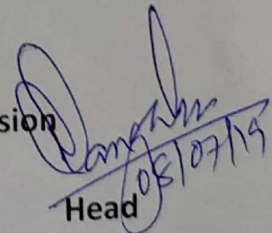 sion
08/07/19
Head